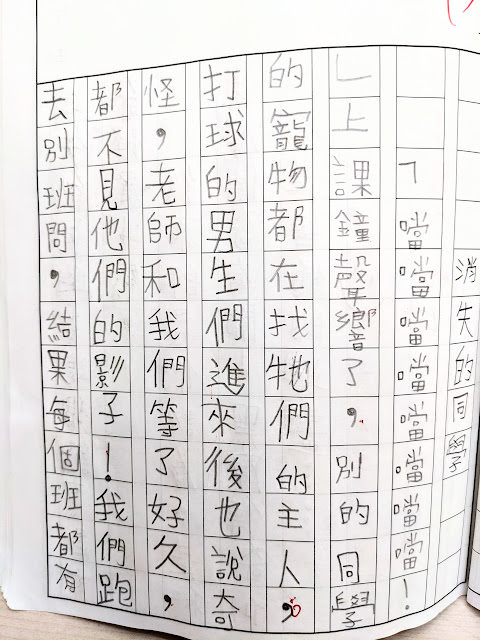 消失的同學
「噹噹噹噹噹噹噹噹!
」上課鐘聲響了,別的同學
的寵物都在找牠們的主人。
打球的男生們進來後也說奇
怪,老師和我們等了好久,
都不見他們的影子!我們跑
去別班問,結果每個班都有